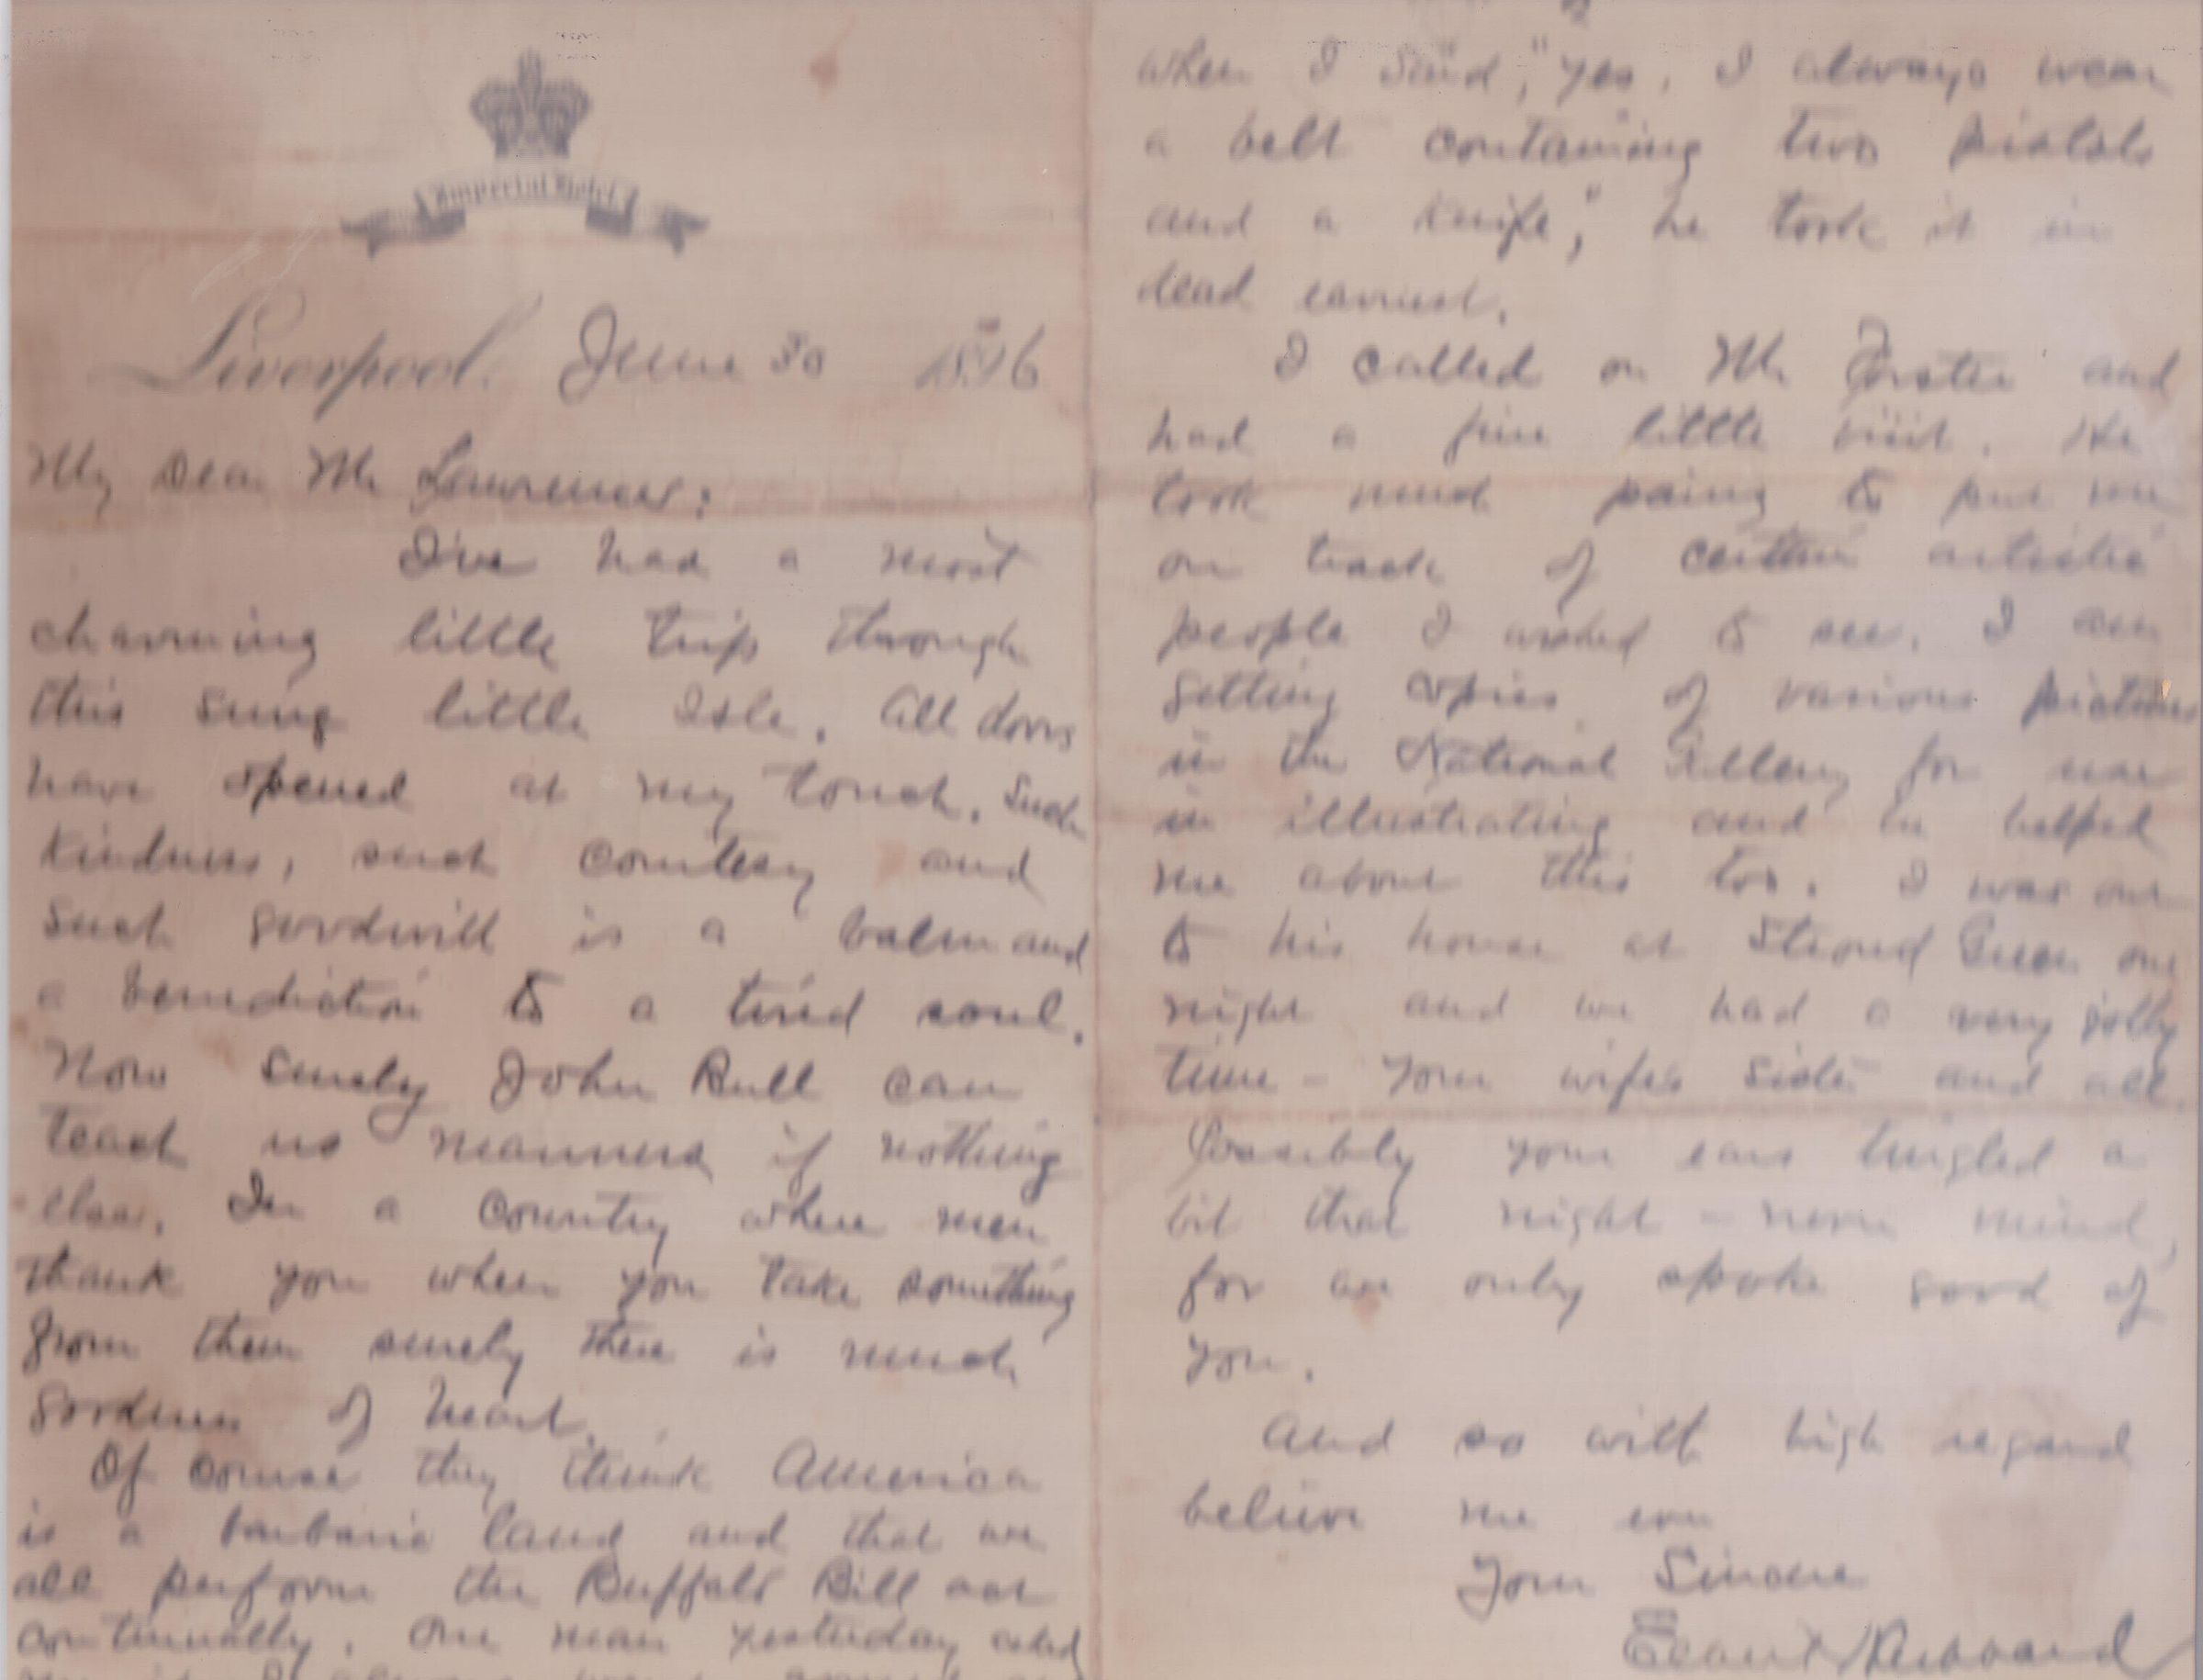 Imperial Hotel
Liverpool. June 30 1896
My Dear Mr Lawrence:
I've had a most
charming little trip through
this snug little Isle. All doors
have opened at my touch. Such
kindness, such courtesy and
such goodwill is a balm and
a benediction to a tired soul.
Now surely John Bull can
teach us manners if nothing
else. In a country where men
thank you when you take something
from them surely there is much
goodness of heart.
Of course they think America
is a barbaric land and that we
all perform the Buffalo Bill act
continually. One man yesterday asked
when I said, "Yes, I always wear
a belt containing two pistols
and a knife," he took it in
dead earnest.
I called on Mr Forster and
had a fine little visit. He
took much pains to put me
on track of certain artistic
people I wished to see. I am
getting copies of various pictures
in the National Gallery for use
in illustrating and he helped
me about this too. I was out
to his house at Stroud Green one
night and we had a very jolly
time - your wife's sister and all.
Possibly your ears tingled a
bit that night - never mind,
for we only spoke good of
you.
And so with high regard
believe me ever
Your Sincere
Elbert Hubbard